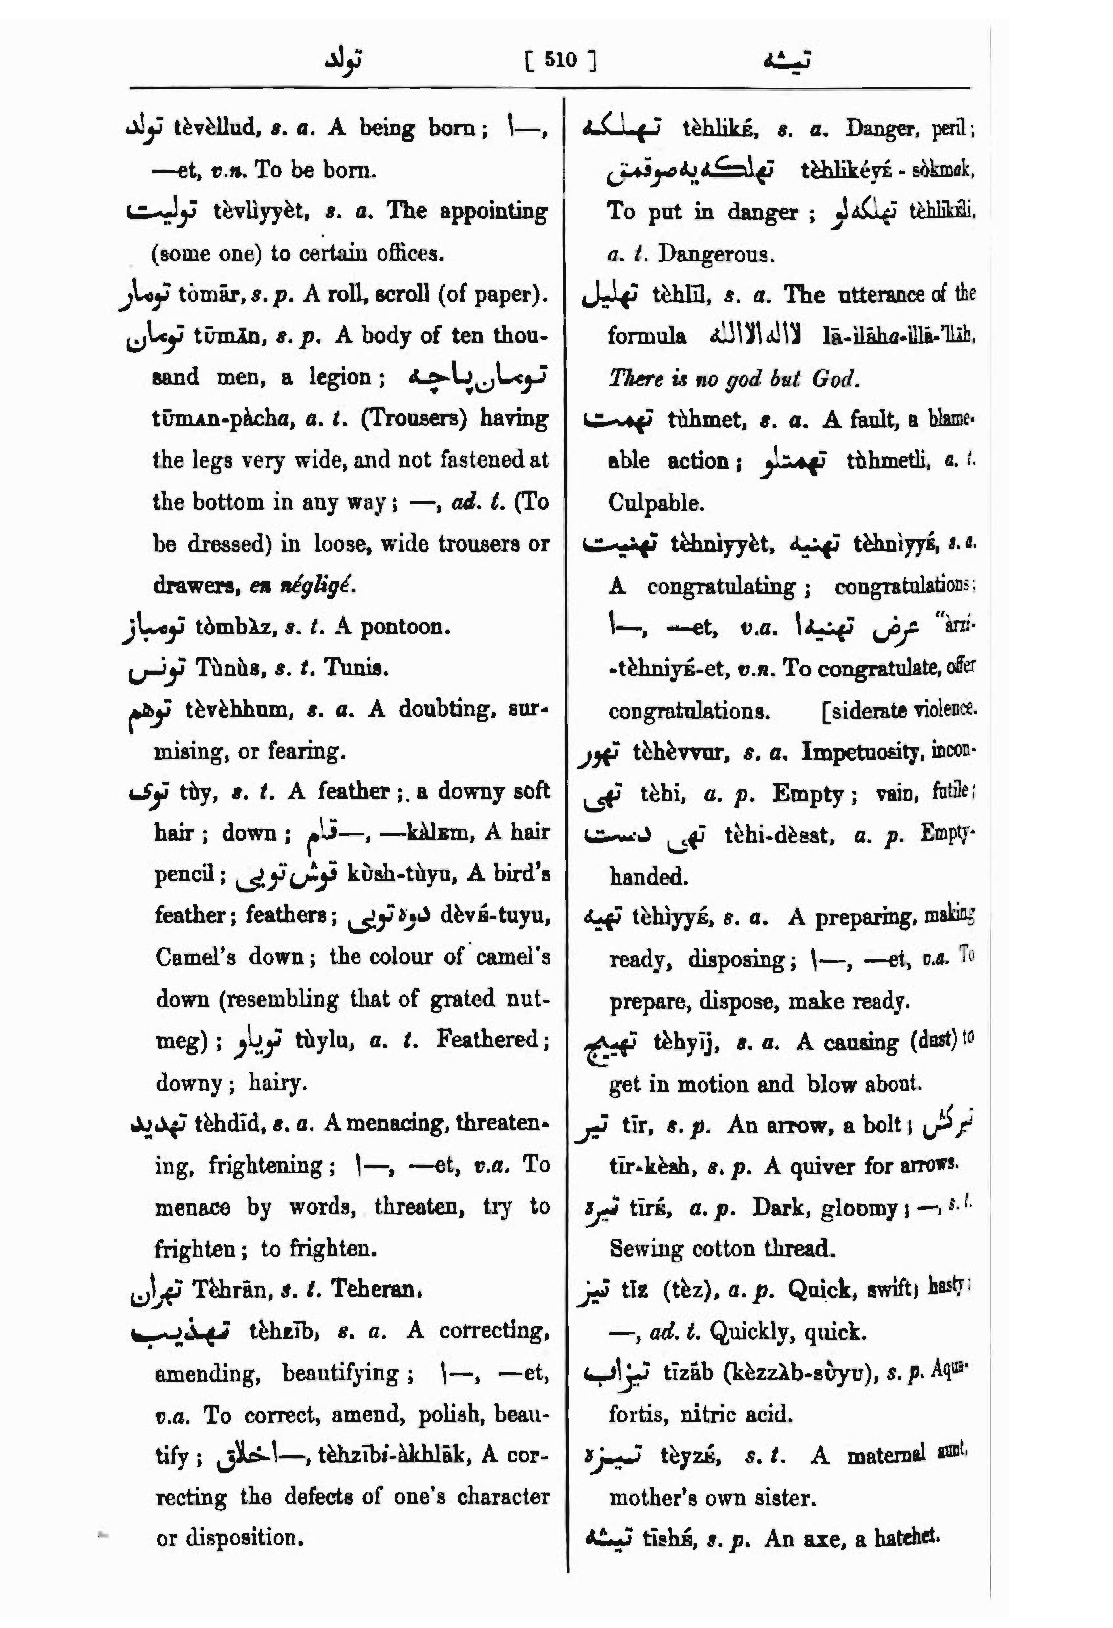 تولد [ 510 ] تیشه
تولد tèvèllud, s. a. A being born; ا—,
—et, v.n. To be born.
تولیت tèvliyyèt, s. a. The appointing
(some one) to certain offices.
تومار tòmār, s. p. A roll, scroll (of paper).
تومان tūmᴀn, s. p. A body of ten thou-
sand men, a legion; تومان پاچه
tūmᴀn-pàcha, a. t. (Trousers) having
the legs very wide, and not fastened at
the bottom in any way; —, ad. t. (To
be dressed) in loose, wide trousers or
drawers, en négligé.
تومباز tòmbàz, s. t. A pontoon.
تونس Tùnùs, s. t. Tunis.
توهم tèvèhhum, s. a. A doubting, sur-
mising, or fearing.
توی tùy, s. t. A feather; a downy soft
hair; down; قلم—, —kàlᴇm, A hair
pencil; قوش تویی kùsh-tùyu, A bird's
feather; feathers; دوه تویی dèvé-tuyu,
Camel's down; the colour of camel's
down (resembling that of grated nut-
meg); تویلو tùylu, a. t. Feathered;
downy; hairy.
تهدید tèhdīd, s. a. A menacing, threaten-
ing, frightening; ا—, —et, v.a. To
menace by words, threaten, try to
frighten; to frighten.
تهران Tèhrān, s. t. Teheran.
تهذیب tèhzīb, s. a. A correcting,
amending, beautifying; ا—, —et,
v.a. To correct, amend, polish, beau-
tify; اخلاق—, tèhzībi-àkhlāk, A cor-
recting the defects of one's character
or disposition.
تهلکه tèhliké, s. a. Danger, peril;
تهلکه یه صوقمق tèhlikéyé-sòkmak,
To put in danger; تهلکه لو tèhlikéli,
a. t. Dangerous.
تهلیل tèhlīl, s. a. The utterance of the
formula لا اله الا الله lā-ilāha-illā-'llāh,
There is no god but God.
تهمت tùhmet, s. a. A fault, a blame-
able action; تهمتلو tùhmetli, a. t.
Culpable.
تهنیت tèhnìyyèt, تهنیه tèhnìyyé, s. a.
A congratulating; congratulations;
ا—, —et, v.a. عرض تهنیه ا "àrzi-
-tèhniyé-et, v.n. To congratulate, offer
congratulations. [siderate violence.
تهور tèhèvvur, s. a. Impetuosity, incon-
تهی tèhi, a. p. Empty; vain, futile;
تهی دست tèhi-dèsst, a. p. Empty-
handed.
تهیه tèhìyyé, s. a. A preparing, making
ready, disposing; ا—, —et, v.a. To
prepare, dispose, make ready.
تهییج tèhyīj, s. a. A causing (dust) to
get in motion and blow about.
تیر tīr, s. p. An arrow, a bolt; تیرکش
tīr-kèsh, s. p. A quiver for arrows.
تیره tīré, a. p. Dark, gloomy; —, s. t.
Sewing cotton thread.
تیز tīz (tèz), a. p. Quick, swift; hasty;
—, ad. t. Quickly, quick.
تیزاب tīzāb (kèzzàb-sùyu), s. p. Aqua-
fortis, nitric acid.
تیزه tèyzé, s. t. A maternal aunt,
mother's own sister.
تیشه tīshé, s. p. An axe, a hatchet.